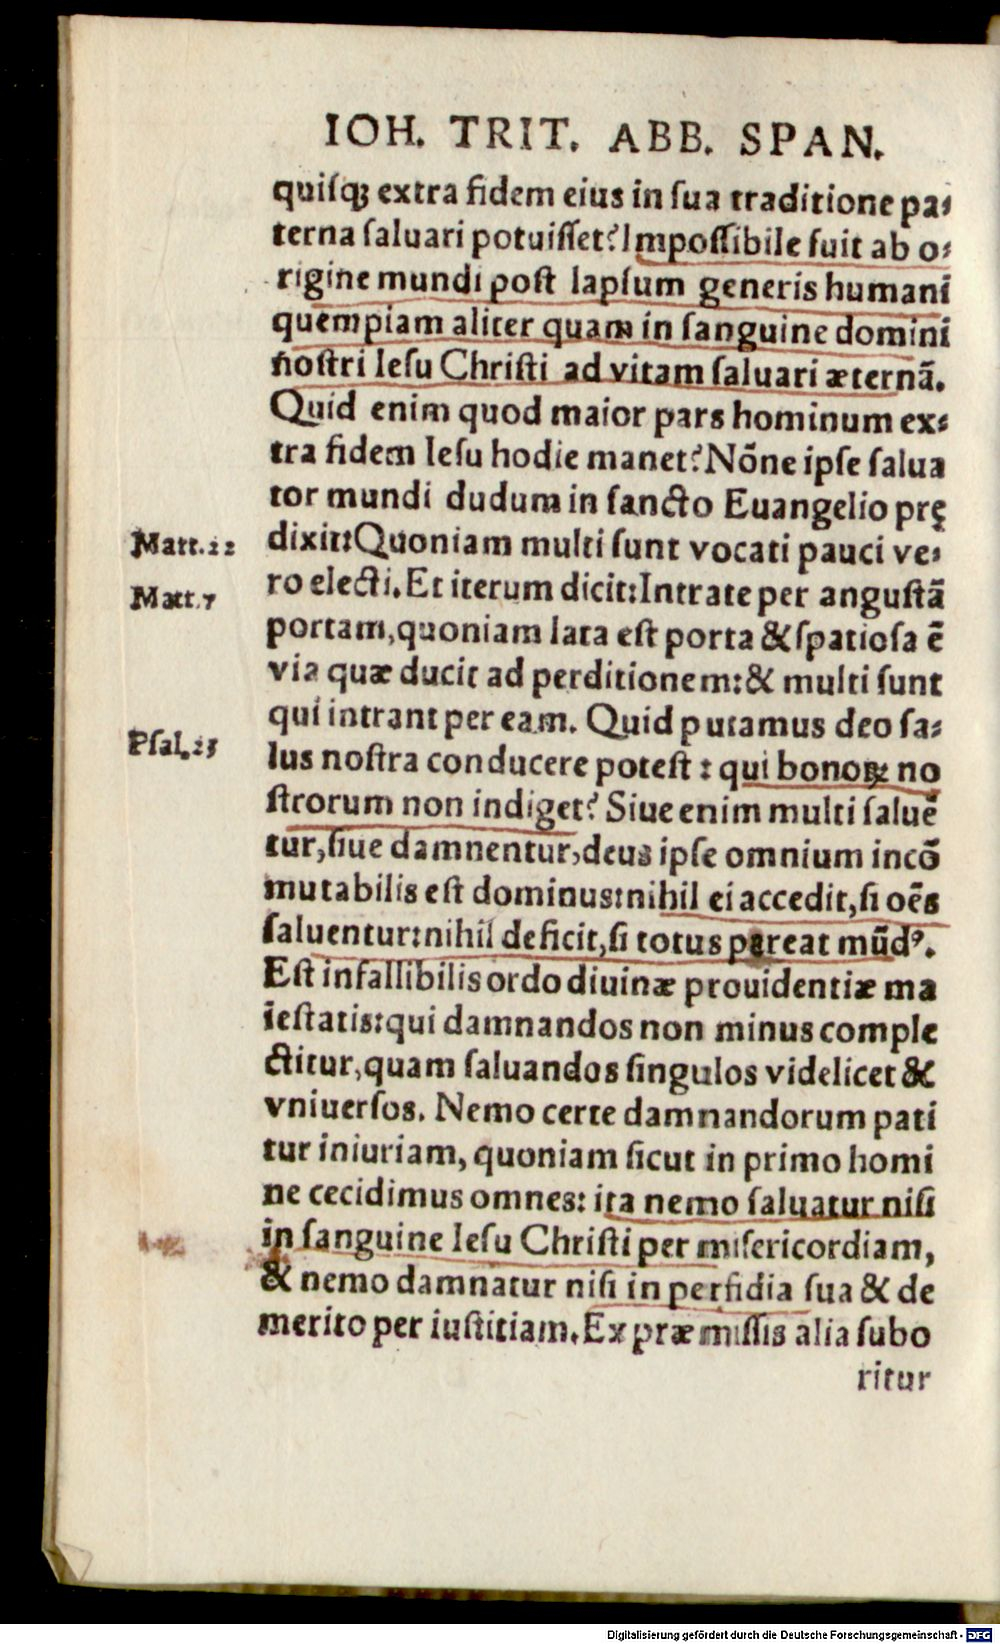 IOH. TRIT. ABB. SPAN.
quiſqꝫ extra fidem eius in ſua traditione pa⸗
terna ſaluari potuiſſet? Impoſſibile fuit ab o⸗
rigine mundi poſt lapſum generis humani
quempiam aliter quam in ſanguine domini
noſtri Ieſu Chriſti ad vitam ſaluari æternã.
Quid enim quod maior pars hominum ex⸗
tra fidem Ieſu hodie manet? Nõne ipſe ſalua
tor mundi dudum in ſancto Euangelio prę
Matt.22 dixit: Quoniam multi ſunt vocati pauci ve⸗
Matt.7 ro electi. Et iterum dicit: Intrate per anguſtã
portam, quoniam lata eſt porta & ſpatioſa ẽ
via quæ ducit ad perditionem: & multi ſunt
qui intrant per eam. Quid putamus deo ſa⸗
Pſal.15 lus noſtra conducere poteſt: qui bonoꝝ no
ſtrorum non indiget? Siue enim multi ſaluẽ
tur, ſiue damnentur, deus ipſe omnium incõ
mutabilis eſt dominus: nihil ei accedit, ſi oẽs
ſaluentur: nihil deficit, ſi totus pereat mũdꝰ.
Eſt infallibilis ordo diuinæ prouidentiæ ma
ieſtatis: qui damnandos non minus comple
ctitur, quam ſaluandos ſingulos videlicet &
vniuerſos. Nemo certe damnandorum pati
tur iniuriam, quoniam ſicut in primo homi
ne cecidimus omnes: ita nemo ſaluatur niſi
in ſanguine Ieſu Chriſti per miſericordiam,
& nemo damnatur niſi in perfidia ſua & de
merito per iuſtitiam. Ex præmiſſis alia ſubo
ritur
Digitalisierung gefördert durch die Deutsche Forschungsgemeinschaft - DFG